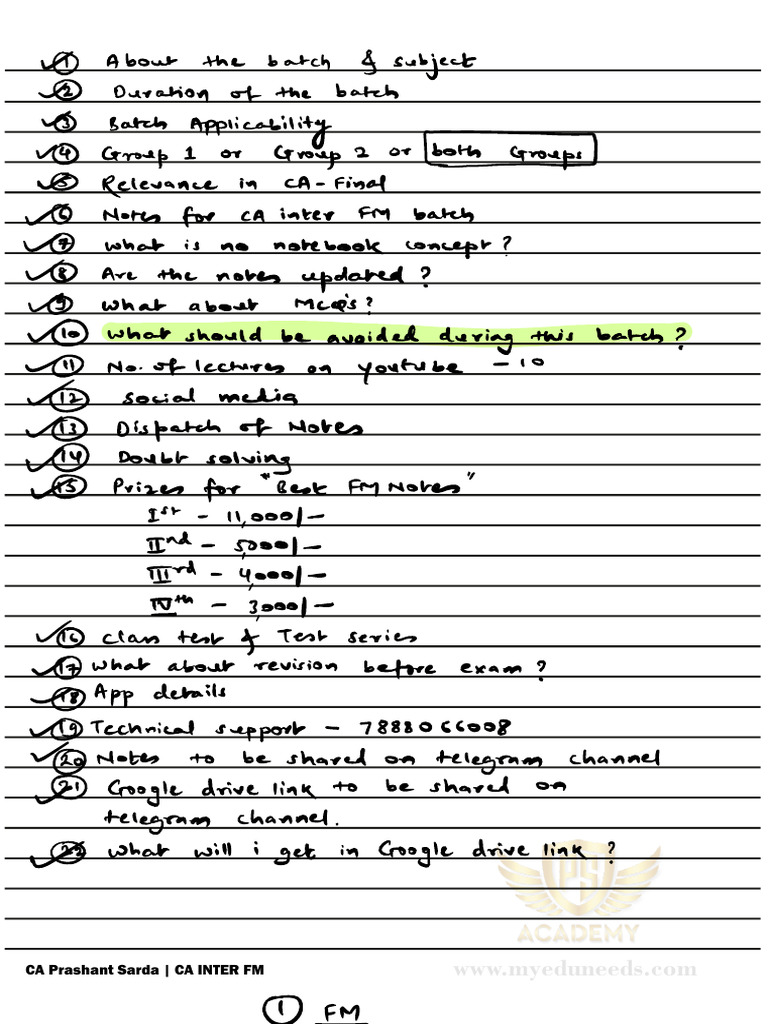 ① About the batch & subject
② Duration of the batch
③ Batch Applicability
④ Group 1 or Group 2 or both Groups
⑤ Relevance in CA-Final
⑥ Notes for CA inter FM batch
⑦ What is no notebook concept?
⑧ Are the notes updated?
⑨ What about MCQ's?
⑩ What should be avoided during this batch?
⑪ No. of lectures on youtube - 10
⑫ social media
⑬ Dispatch of Notes
⑭ Doubt solving
⑮ Prizes for "Best FM Notes"
Ist - 11,000/-
IInd - 5,000/-
IIIrd - 4,000/-
IVth - 3,000/-
⑯ class test & Test series
⑰ What about revision before exam?
⑱ App details
⑲ Technical support - 7888066008
⑳ Notes to be shared on telegram channel
㉑ Google drive link to be shared on
telegram channel.
㉒ What will i get in Google drive link?
PS
ACADEMY
CA Prashant Sarda | CA INTER FM
www.myeduneeds.com
① FM